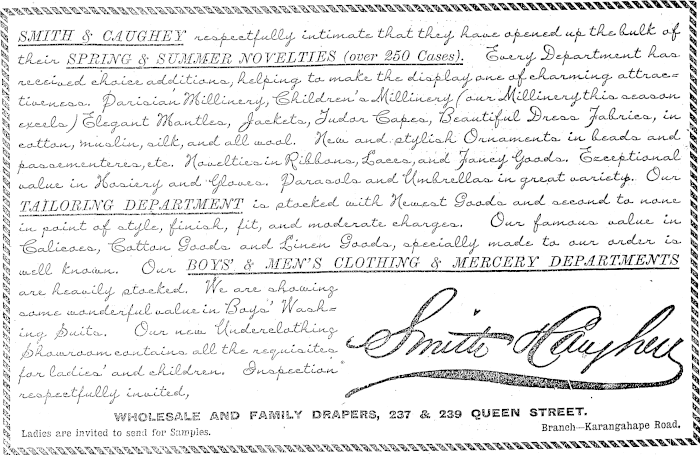 SMITH & CAUGHEY respectfully intimate that they have opened up the bulk of
their SPRING & SUMMER NOVELTIES (over 250 Cases). Every Department has
received choice additions, helping to make the display one of charming attrac-
tiveness. Parisian Millinery, Children's Millinery (our Millinery this season
excels) Elegant Mantles, Jackets, Tudor Capes, Beautiful Dress Fabrics, in
cotton, muslin, silk, and all wool. New and stylish Ornaments in beads and
passementeres, etc. Novelties in Ribbons, Laces, and Fancy Goods. Exceptional
value in Hosiery and Gloves. Parasols and Umbrellas in great variety. Our
TAILORING DEPARTMENT is stocked with Newest Goods and second to none
in point of style, finish, fit, and moderate charges. Our famous value in
Calicoes, Cotton Goods and Linen Goods, specially made to our order is
well known. Our BOYS' & MEN'S CLOTHING & MERCERY DEPARTMENTS
are heavily stocked. We are showing
some wonderful value in Boys' Wash-
ing Suits. Our new Underclothing
Showroom contains all the requisites
for ladies' and children. Inspection
respectfully invited,
Smith & Caughey
WHOLESALE AND FAMILY DRAPERS, 237 & 239 QUEEN STREET.
Ladies are invited to send for Samples. Branch—Karangahape Road.